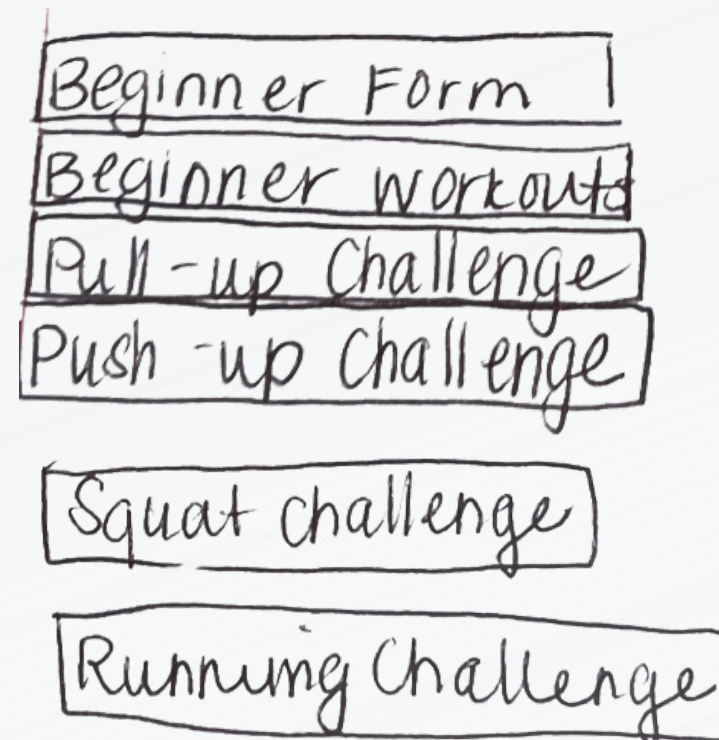 Beginner Form
Beginner workouts
Pull-up Challenge
Push-up Challenge
Squat challenge
Running Challenge